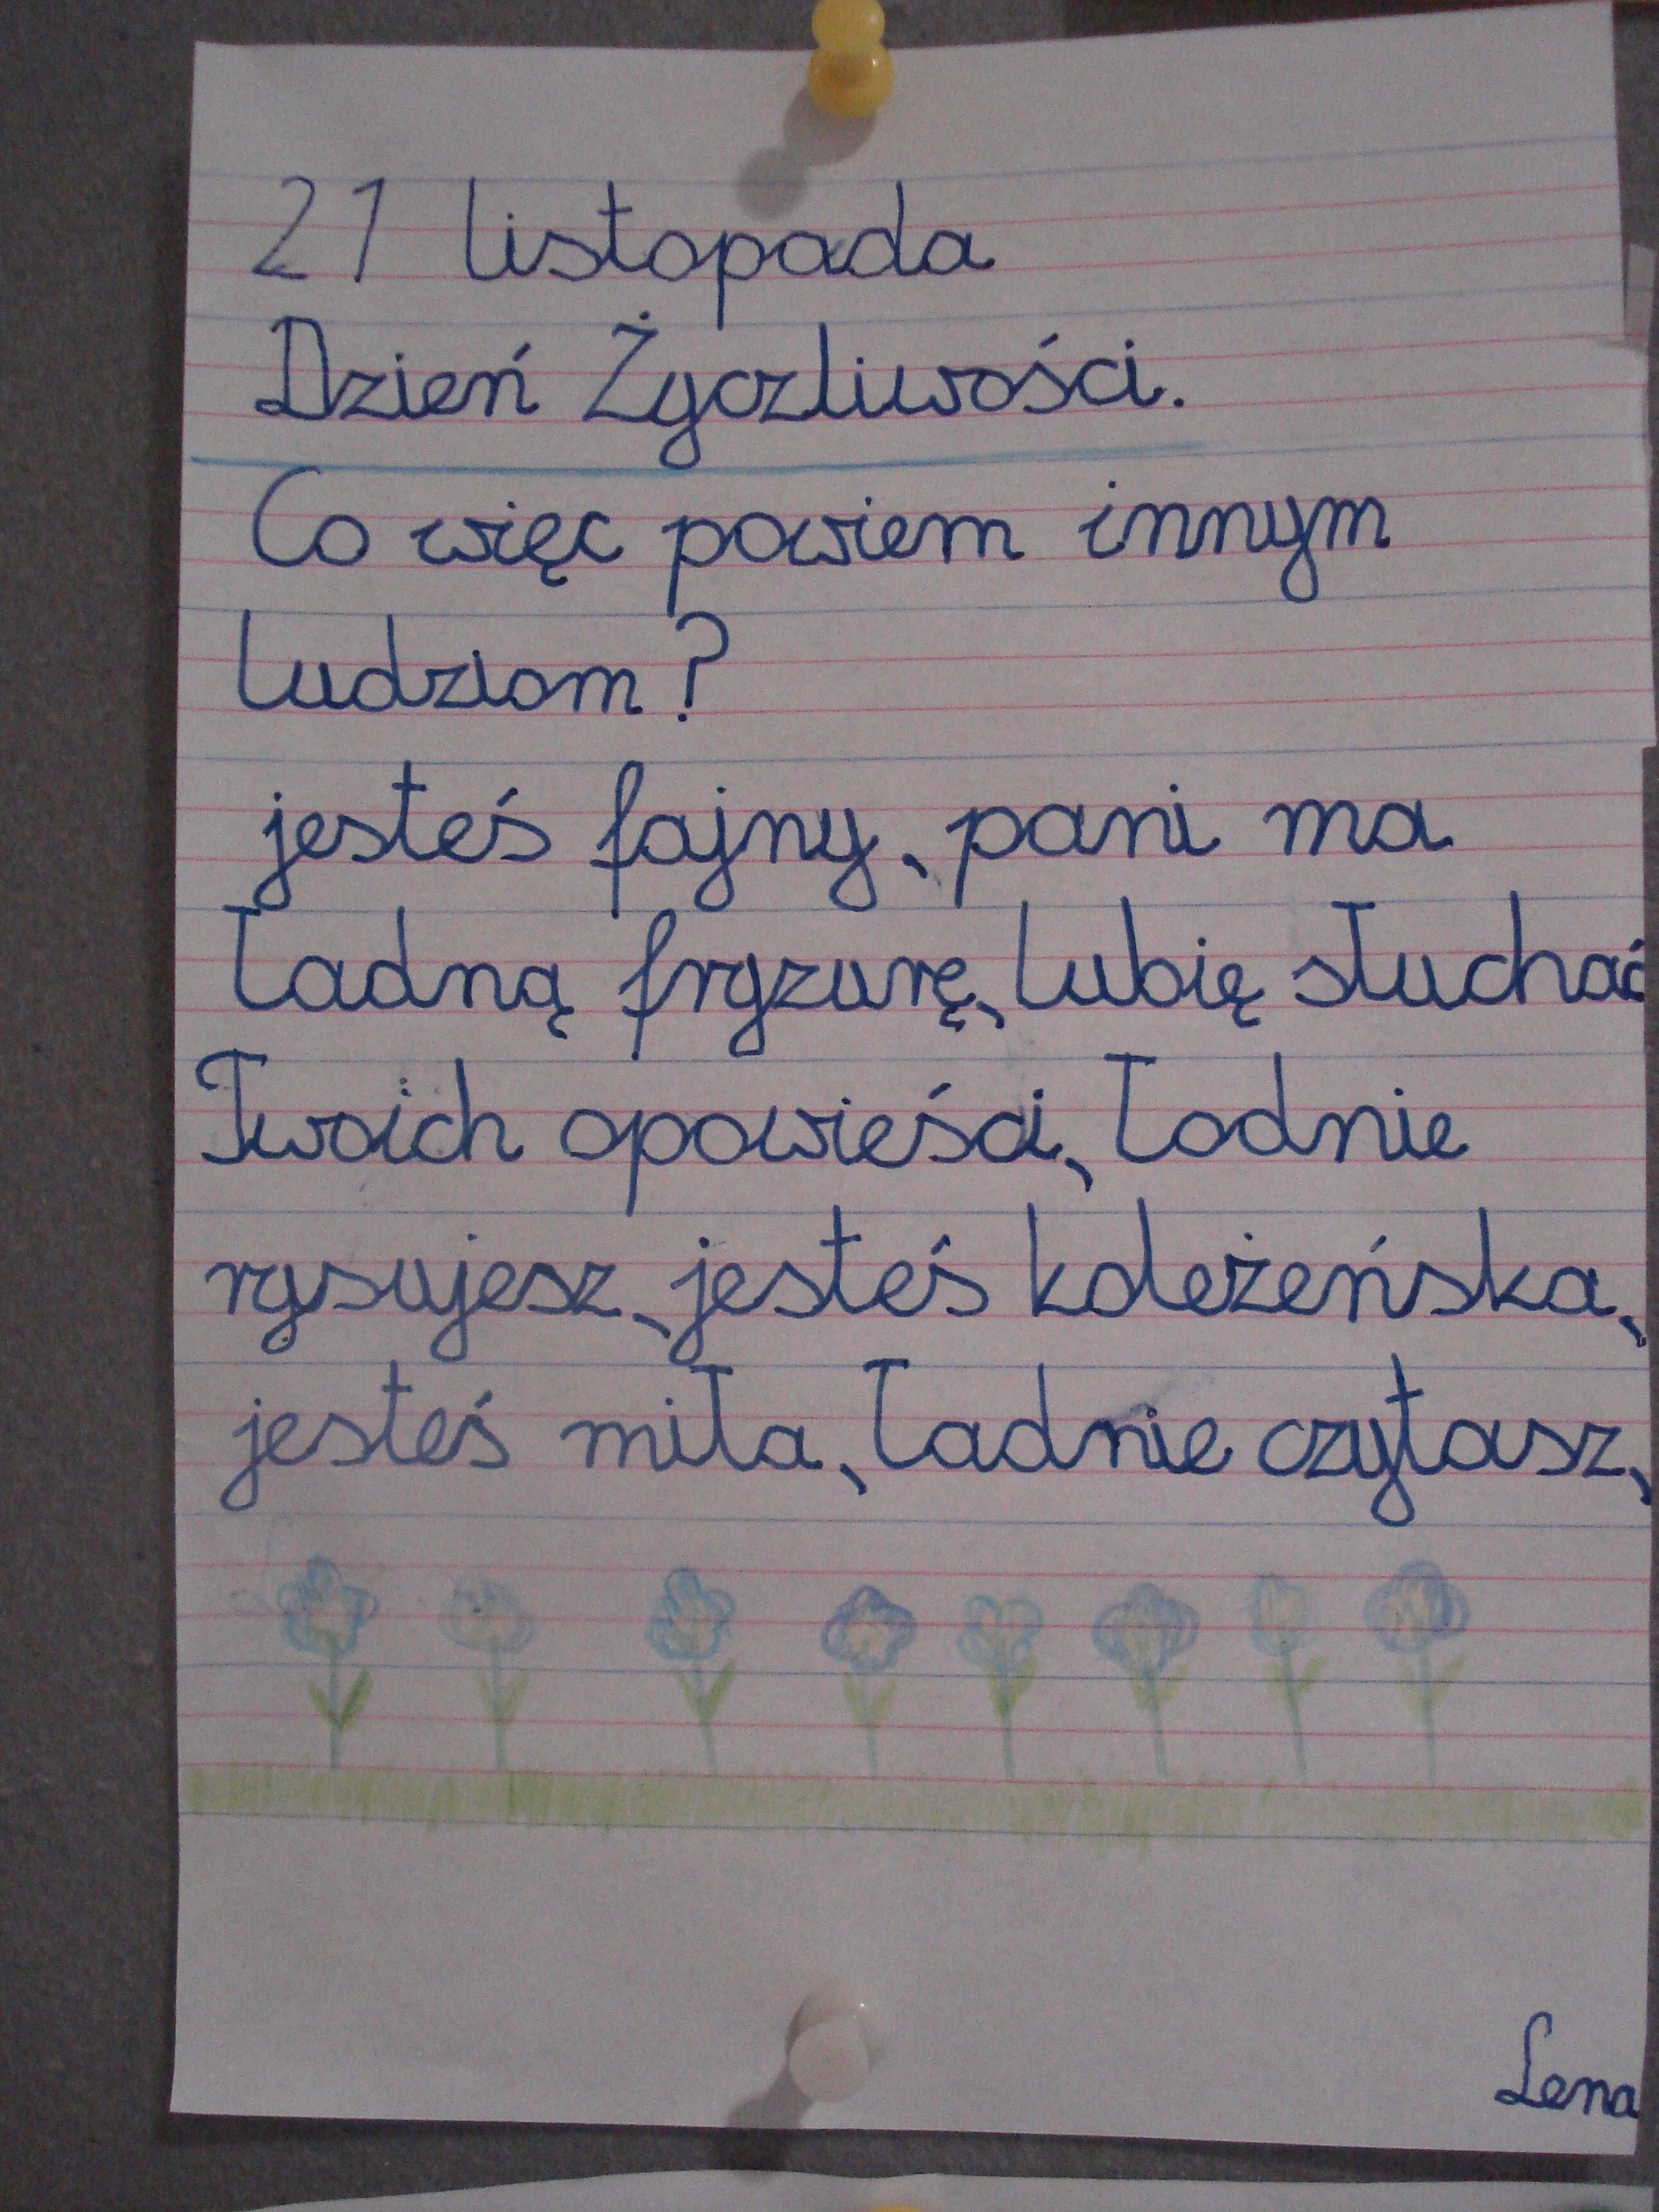 21 listopada
Dzień Życzliwości.
Co więc powiem innym
ludziom?
jesteś fajny, pani ma
ładną fryzurę, lubię słuchać
Twoich opowieści, ładnie
rysujesz, jesteś koleżeńska,
jesteś miła, ładnie czytasz,
Lena